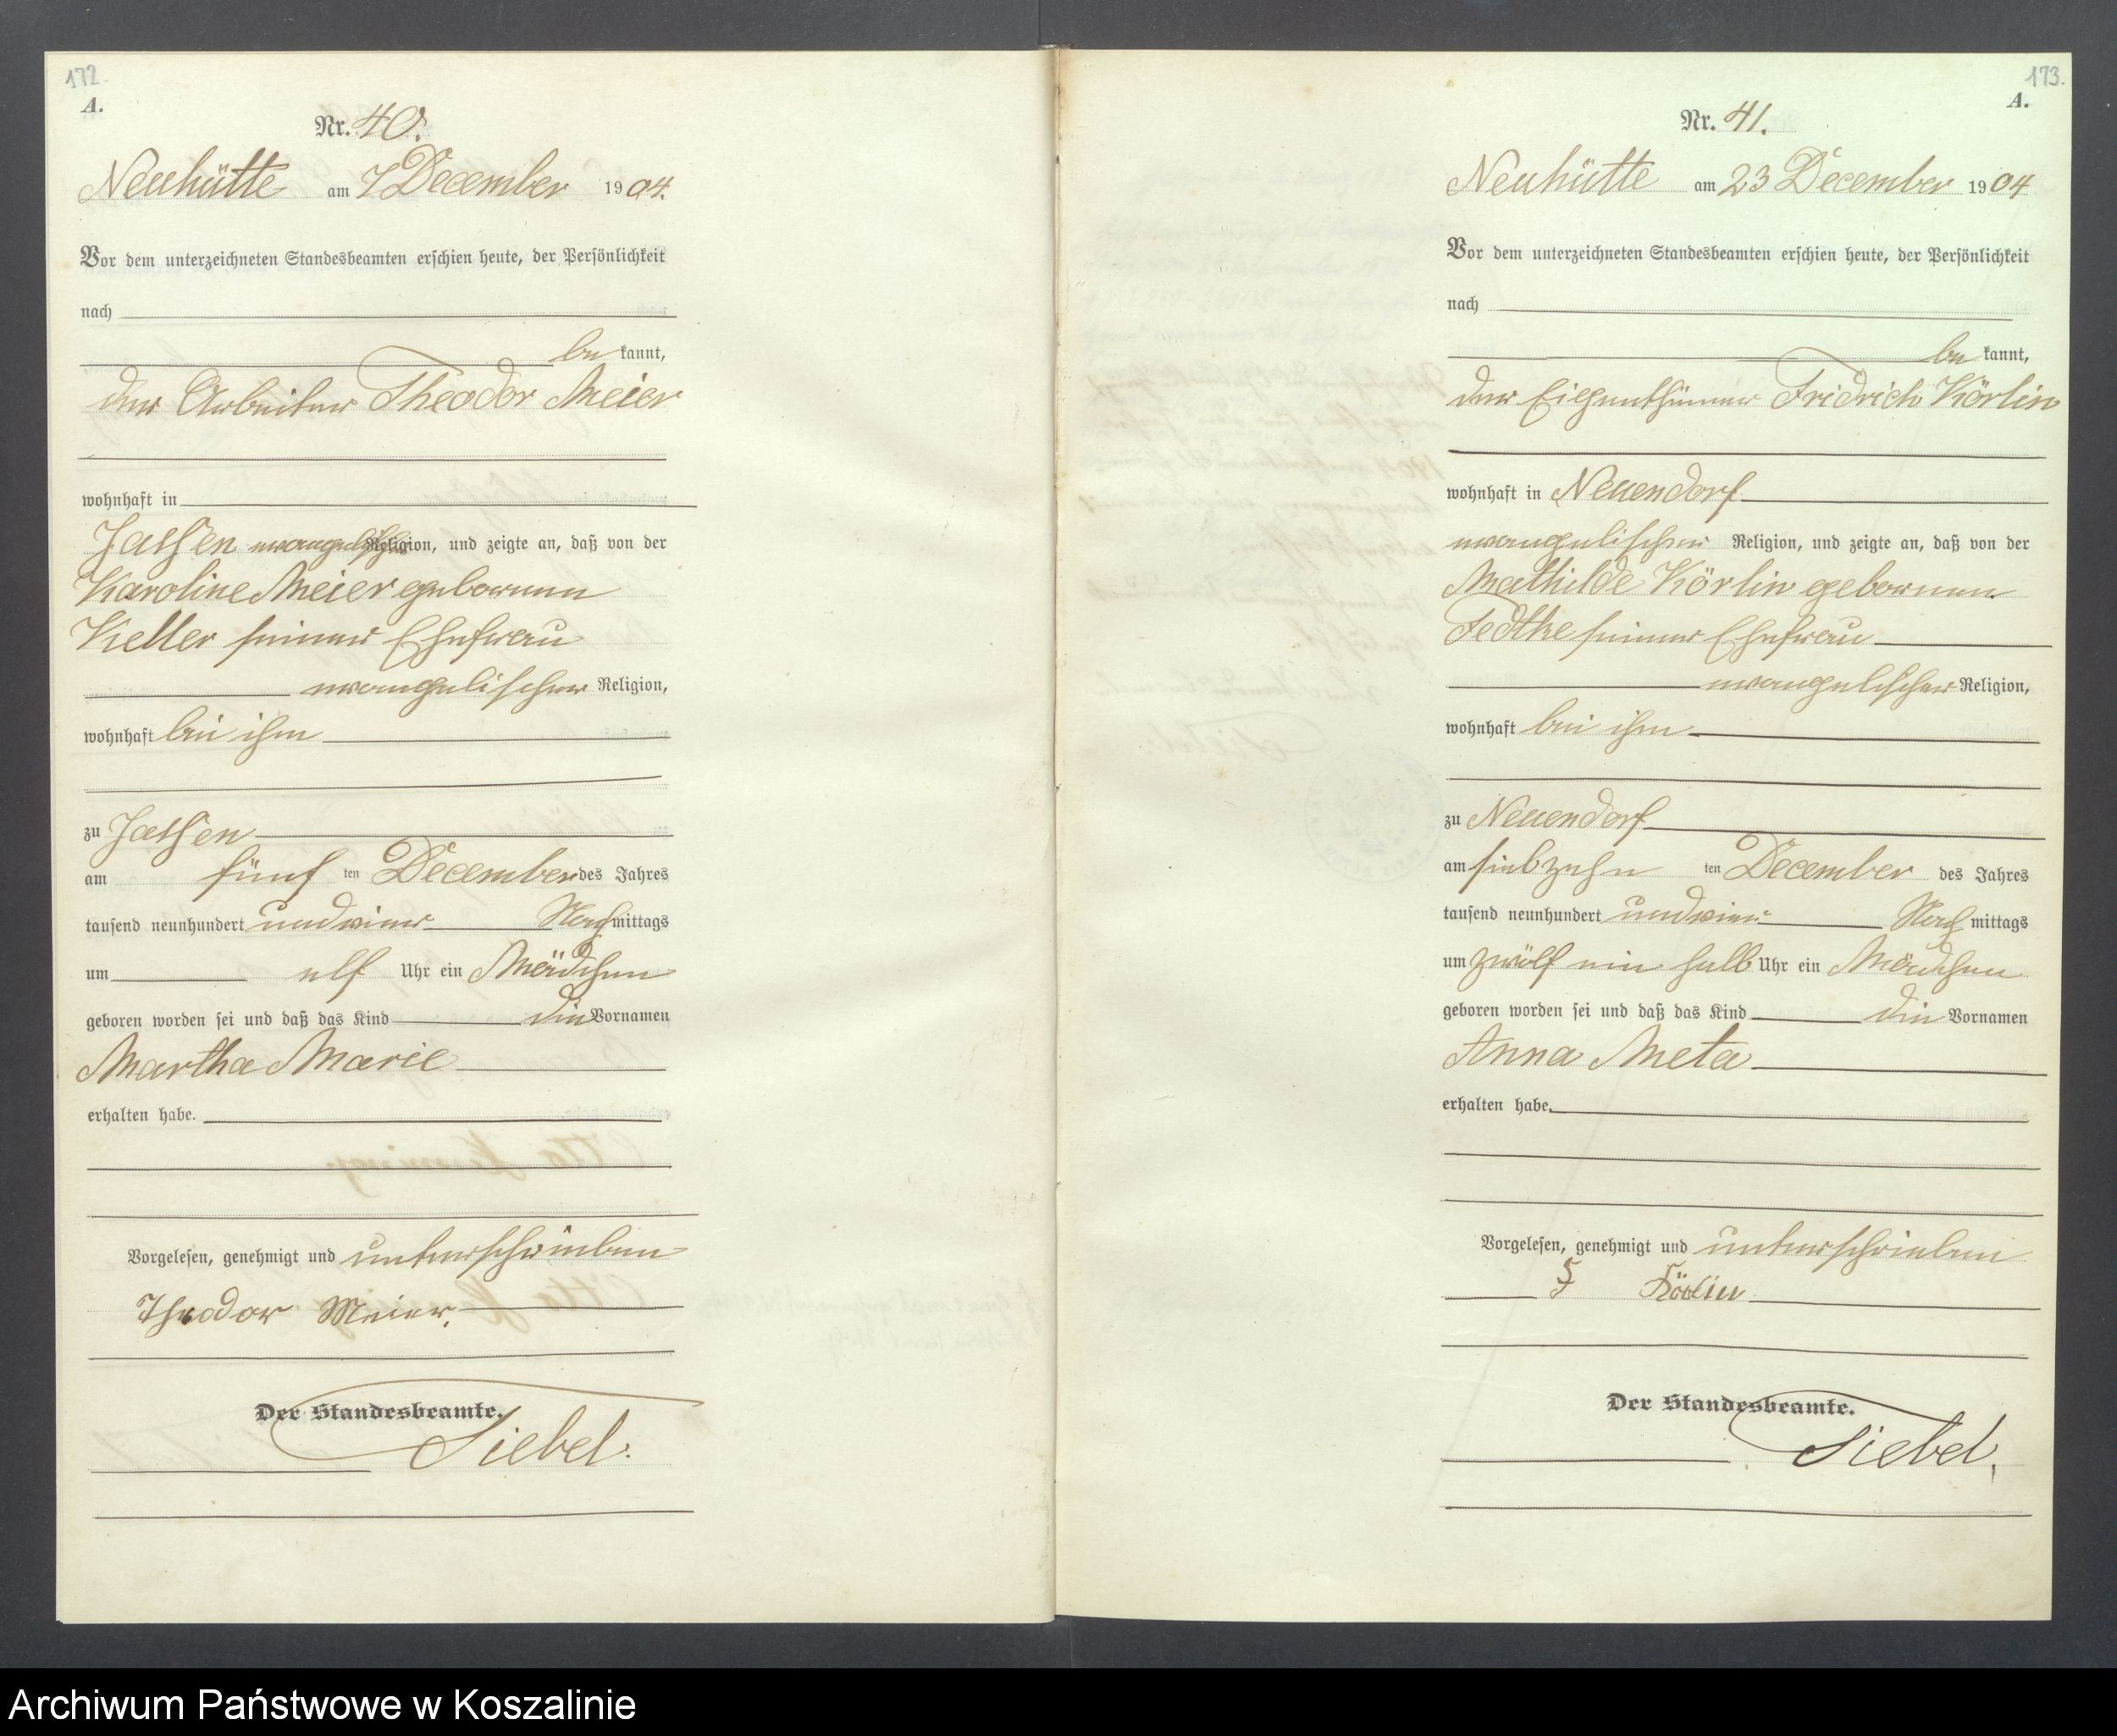 172.
A.
Nr. 40.
Neuhütte am 7 December 1904.
Vor dem unterzeichneten Standesbeamten erschien heute, der Persönlichkeit
nach
be kannt,
der Arbeiter Theodor Meier
wohnhaft in
Jassen evangelischer Religion, und zeigte an, daß von der
Karoline Meier geborenen
Keller seiner Ehefrau
evangelischer Religion,
wohnhaft bei ihm
zu Jassen
am fünf ten December des Jahres
tausend neunhundert und vier Nach mittags
um elf Uhr ein Mädchen
geboren worden sei und daß das Kind die Vornamen
Martha Marie
erhalten habe.
Vorgelesen, genehmigt und unterschrieben
Theodor Meier.
Der Standesbeamte.
Siebel.
173.
A.
Nr. 41.
Neuhütte am 23 December 1904
Vor dem unterzeichneten Standesbeamten erschien heute, der Persönlichkeit
nach
be kannt,
der Eigenthümer Fridrich Körlin
wohnhaft in Neuendorf
evangelischer Religion, und zeigte an, daß von der
Mathilde Körlin geborenen
Fedtke seiner Ehefrau
evangelischer Religion,
wohnhaft bei ihm
zu Neuendorf
am siebzehn ten December des Jahres
tausend neunhundert und vier Nach mittags
um zwölf ein halb Uhr ein Mädchen
geboren worden sei und daß das Kind die Vornamen
Anna Meta
erhalten habe.
Vorgelesen, genehmigt und unterschrieben
F Körlin
Der Standesbeamte.
Siebel.
Archiwum Państwowe w Koszalinie